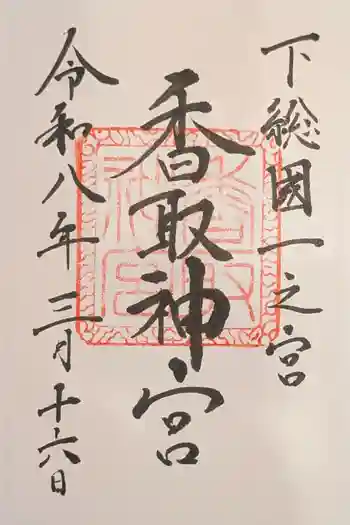 下総國一之宮
香取神宮
令和八年三月十六日